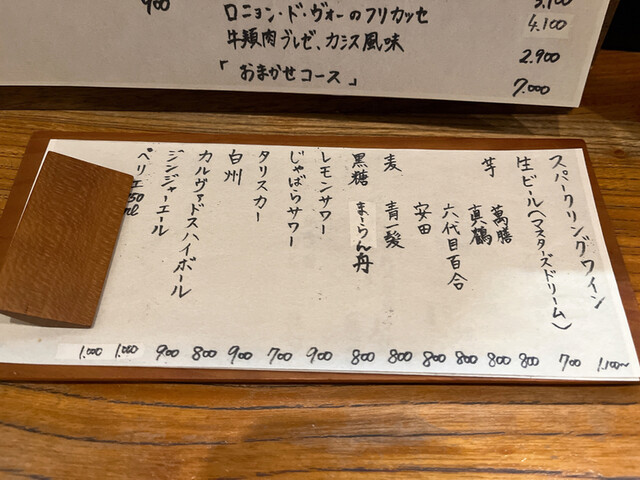 900
3.100
ロニョン・ド・ヴォーのフリカッセ 4.100
牛頬肉ブレゼ、カシス風味 2.900
「おまかせコース」 7.000
スパークリングワイン 1.100〜
生ビール(マスターズドリーム) 700
芋 萬膳 800
真鶴 800
六代目百合 800
安田 800
麦 青一髪 800
黒糖 まーらん舟 800
レモンサワー 900
じゃばらサワー 700
タリスカー 900
白州 800
カルヴァドスハイボール 900
ジンジャーエール 1.000
ペリエ 50ml 1.000